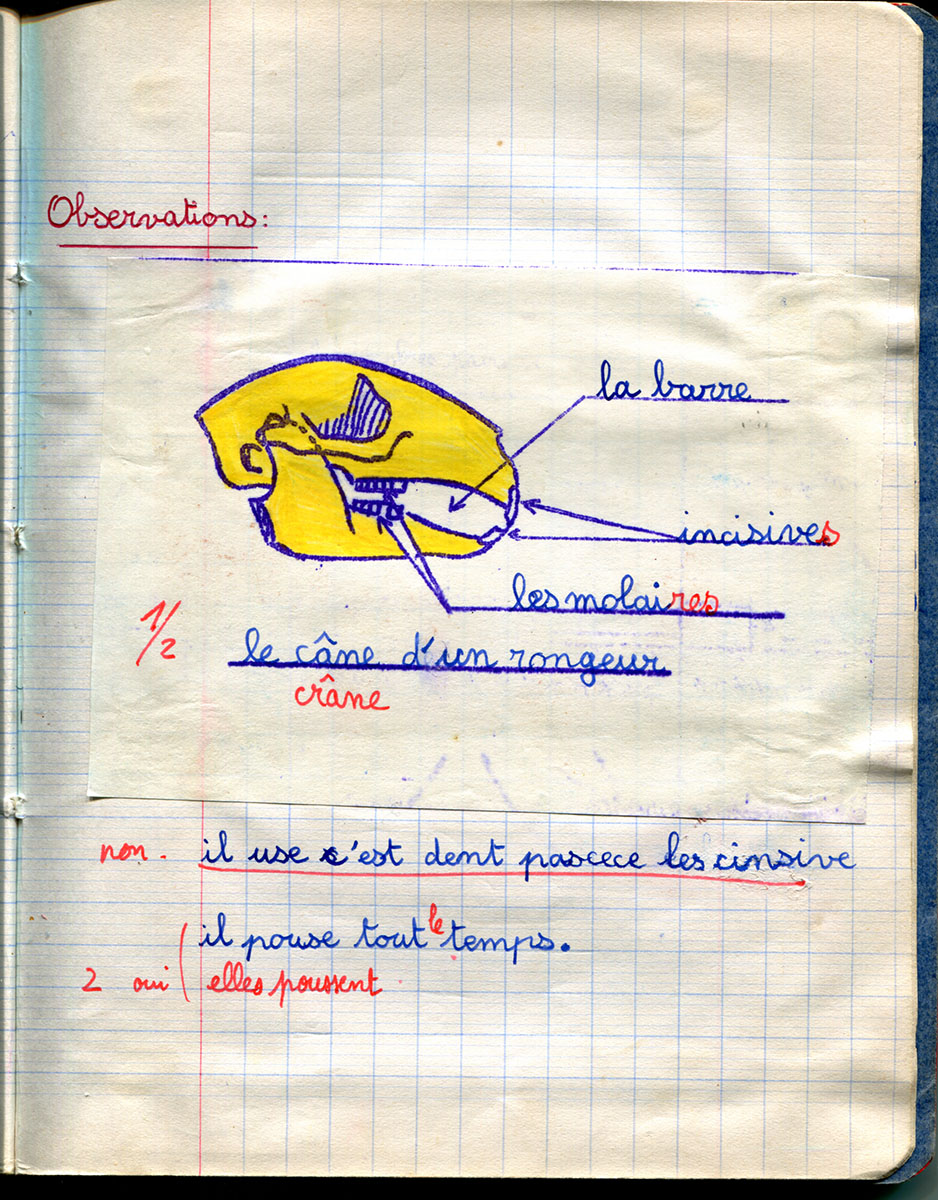 Observations:
la barre
incisives
les molaires
1/2
le câne d'un rongeur
crâne
non. il use c'est dent pascece les cinsive
il pouse tout le temps.
2 oui elles poussent